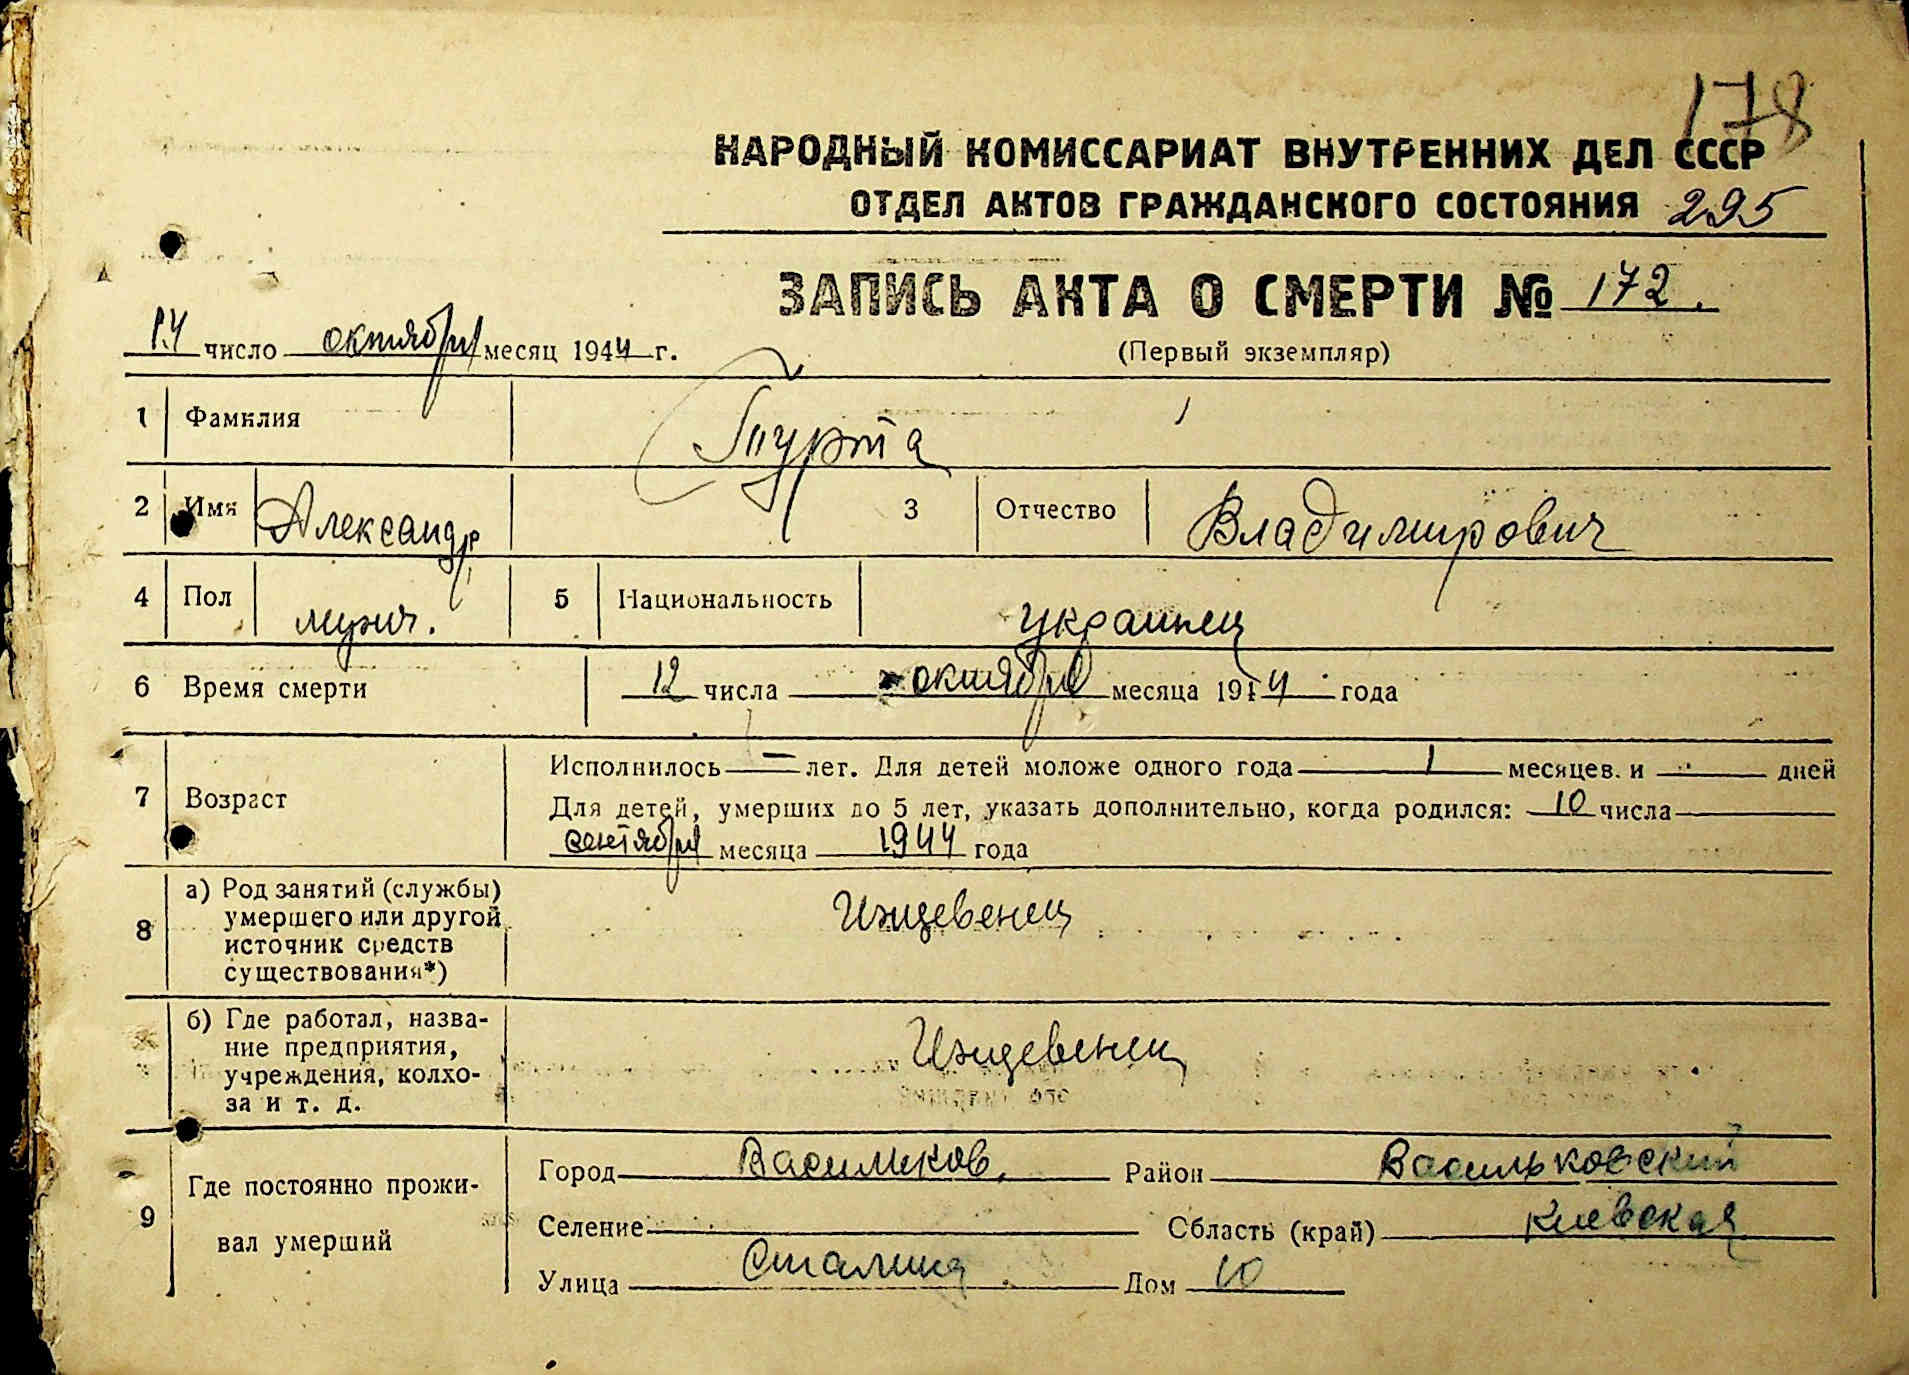 178
НАРОДНЫЙ КОМИССАРИАТ ВНУТРЕННИХ ДЕЛ СССР
ОТДЕЛ АКТОВ ГРАЖДАНСКОГО СОСТОЯНИЯ 295
ЗАПИСЬ АКТА О СМЕРТИ № 172.
14 число октября месяц 1944 г.
(Первый экземпляр)
1 Фамилия
2 Имя Александр 3 Отчество Владимирович
4 Пол мужч. 5 Национальность украинец
6 Время смерти 12 числа октября месяца 1944 года
Исполнилось — лет. Для детей моложе одного года 1 месяцев. и - дней
7 Возраст
Для детей, умерших до 5 лет, указать дополнительно, когда родился: 10 числа
сентября месяца 1944 года
8 а) Род занятий (службы)
умершего или другой
источник средств
существования*)
Иждевенец
б) Где работал, назва-
ние предприятия,
учреждения, колхо-
за и т. д.
Иждевенец
9 Где постоянно прожи-
вал умерший
Город Васильков. Район Васильковский
Селение Область (край) Киевская
Улица Сталина Дом 10